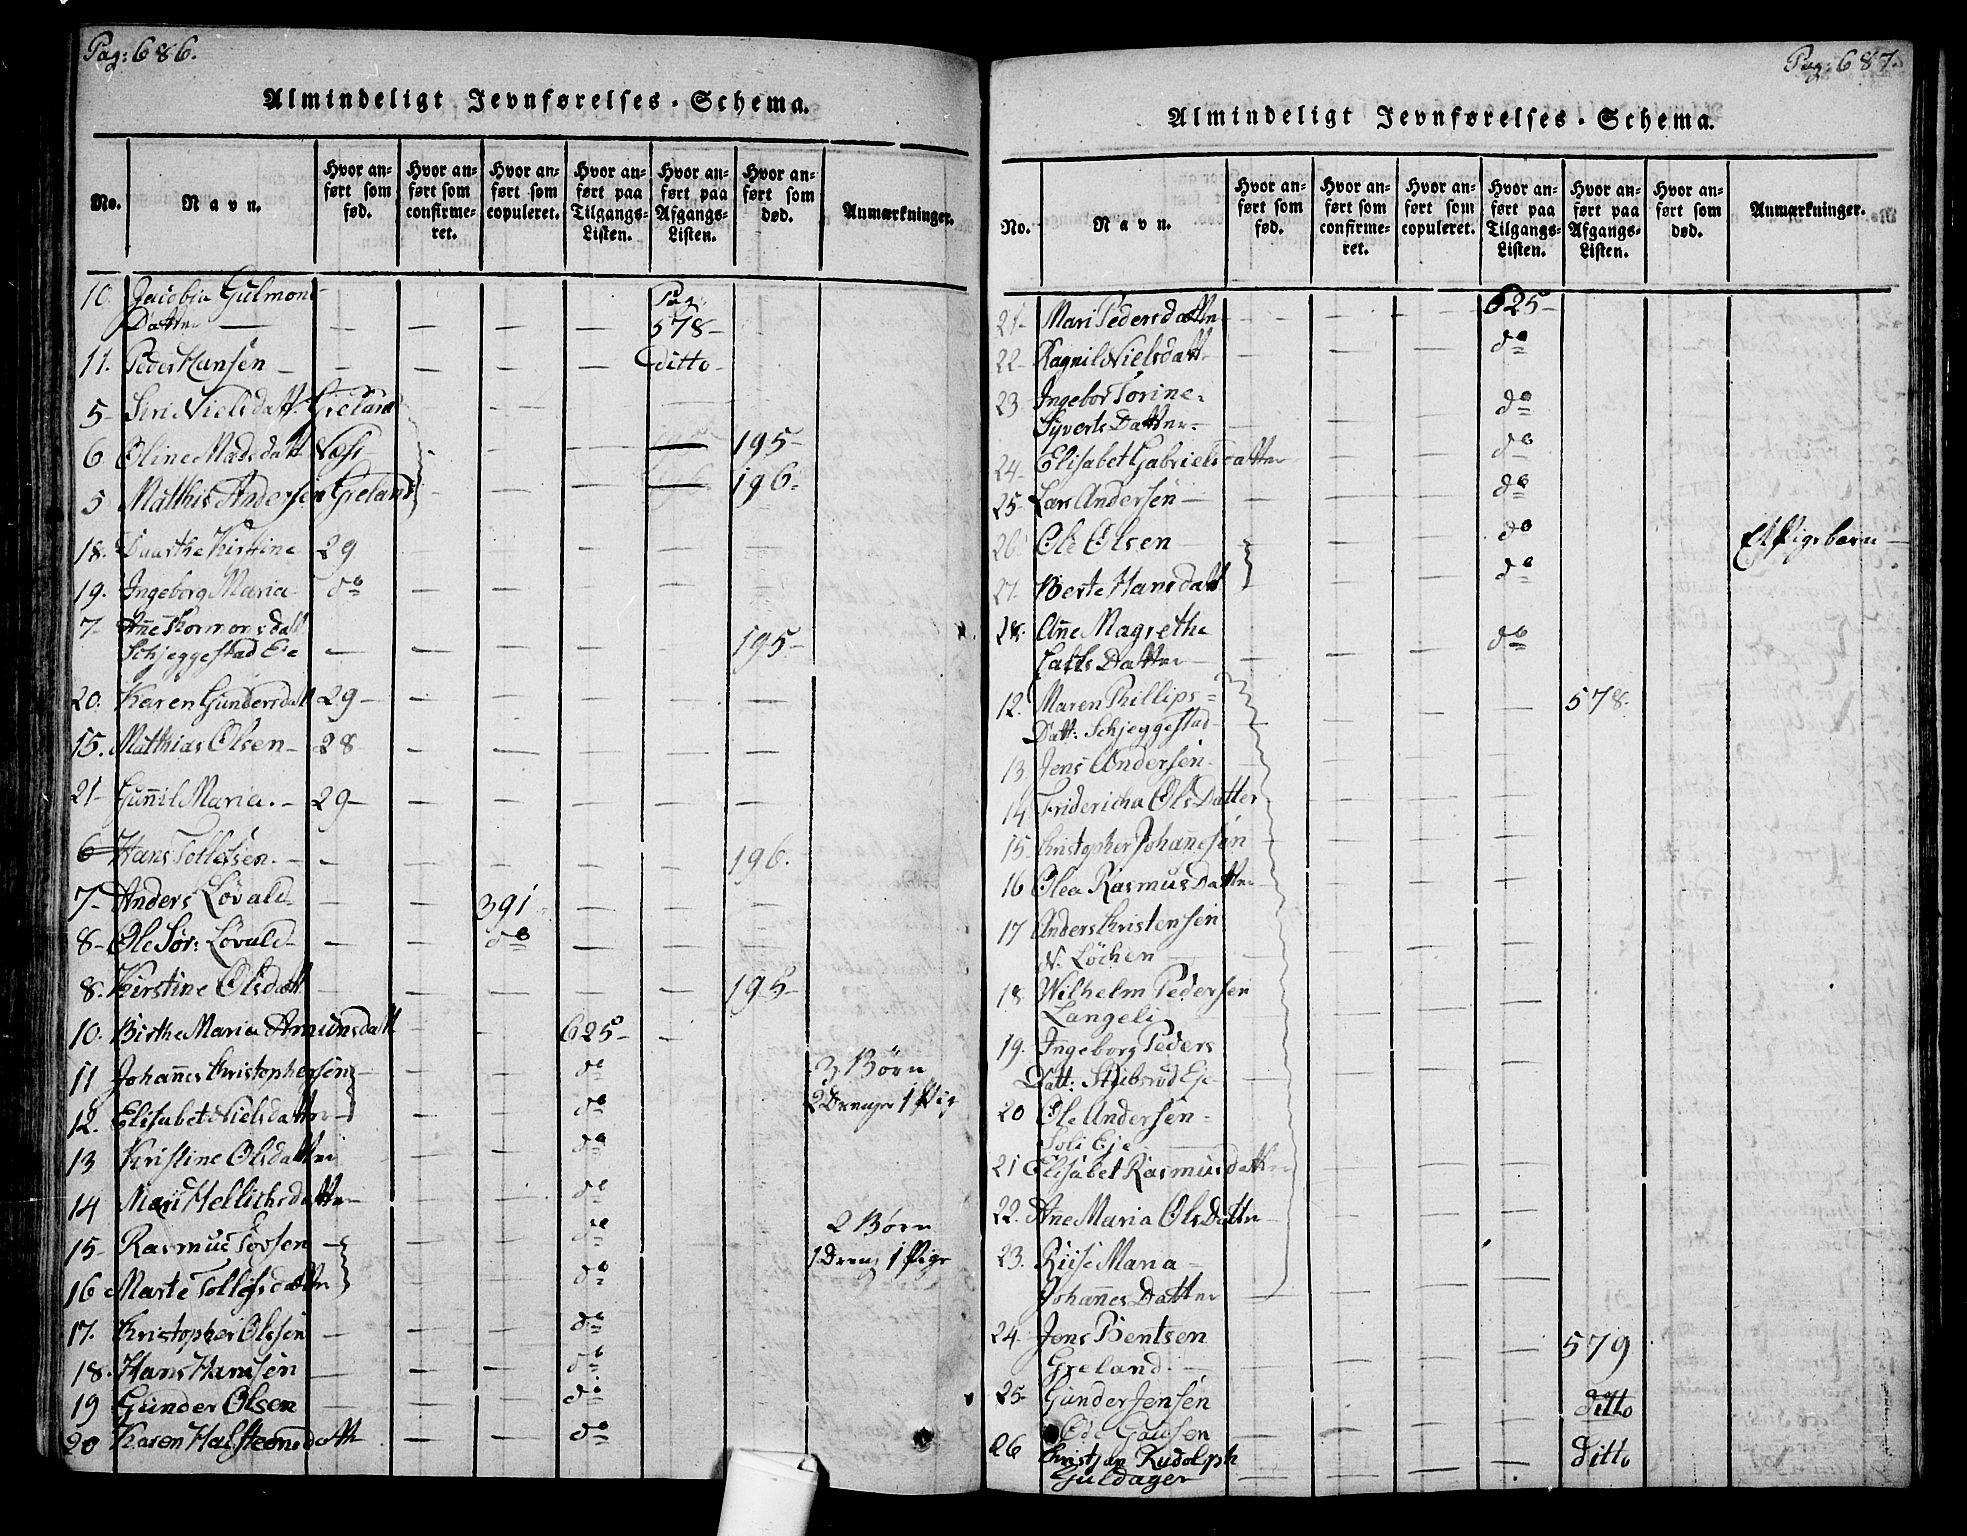 Pag: 686.
Almindeligt Jevnførelses-Schema.
No. Navn. Hvor anført som fød. Hvor anført som confirmeret. Hvor anført som copuleret. Hvor anført paa Tilgangs-Listen. Hvor anført paa Afgangs-Listen. Hvor anført som død. Anmærkninger.
10. Jacobia Gulmons
Datter — — — — — Pag: 578-
11. Peder Hansen — — — — — Ditto-
5- Siri Nielsdatt. Greland — — —
6 Oline Madsdatt Næss — — — — 195-
5 Mathis Andersen Greland — — — — 196-
18. Daarthe Kirstine 29 — — — — —
19. Ingeborg Maria d° — — — — —
7- Anne Thormonsdatt
Schjeggestad Eie — — — — — 195-
20. Karen Gundersdatt 29- — — — — —
15. Mathias Olsen- 28 — — — — —
21- Gunnil Maria.- 29- — — — — —
6 Hans Tollefsen.- — — — — — 196.
7- Anders Løvald- — — 391- — — —
8- Ole Sør: Løvald- — — d° — — —
8. Kirstine Olsdatt — — — — — 195-
10. Birthe Maria Amunsdatt — — 625- —
11 Johannes Christophersen — — — d° 3 Børn
12. Elisabet Nielsdatter — — — d° 2 Drenge 1 Pig
13 Kristine Olsdatter — — — d°
14 Mari Hellichsdatter — — — d°
15- Rasmus Torsen — — — d° 2 Børn
16 Marte Tollefsdatter — — — d° 1 Dreng 1 Pige
17. Kristopher Olssen — — — d°
18. Hans Hansen — — — d°
19 Gunder Olsen — — — d°
20 Karen Halsteensdatt — — d°
Pag: 687.
Almindeligt Jevnførelses-Schema.
No. Navn. Hvor anført som fød. Hvor anført som confirmeret. Hvor anført som copuleret. Hvor anført paa Tilgangs-Listen. Hvor anført paa Afgangs-Listen. Hvor anført som død. Anmærkninger.
21- Mari Pedersdatter — — — 625-
22- Ragnil Nielsdatt — — — d°
23 Ingebor Torine-
Syverts Datter- — — — d°
24- Elisabet Gabrielsdatter — — d°
25- Lars Andersen — — — — d°
26 Ole Olsen — — — — d° Et Pigebarn
27. Berte Hansdatt — — — d°
28. Anne Magrethe
Datter — — — — d°
12. Maren Phillips=
Datt: Schjeggestad- — — — — 578.
13 Jens Andersen — — — —
14 Fridericha OlsDatter — — — —
15- Christopher Johannesen — — — —
16 Olea RasmusDatter — — — —
17 Anders Christensen
N. Løchen — — — — —
18 Wilhelm Pedersen
Langeli — — — —
19. Ingeborg Peders
Datt: Stubsrud Eje — — — —
20 Ole Andersen-
Soli Eje — — — —
21 Elisabet Rasmusdatter — — —
22. Ane Maria OlsDatter — — — —
23. Riise Maria-
Johannes Datter — — — —
24. Jens Bentsen
Greland. — — — — — 579
25- Gunder Jensen
— — — — Ditto
26 Christjan Rudolph
Guldager — — — — Ditto